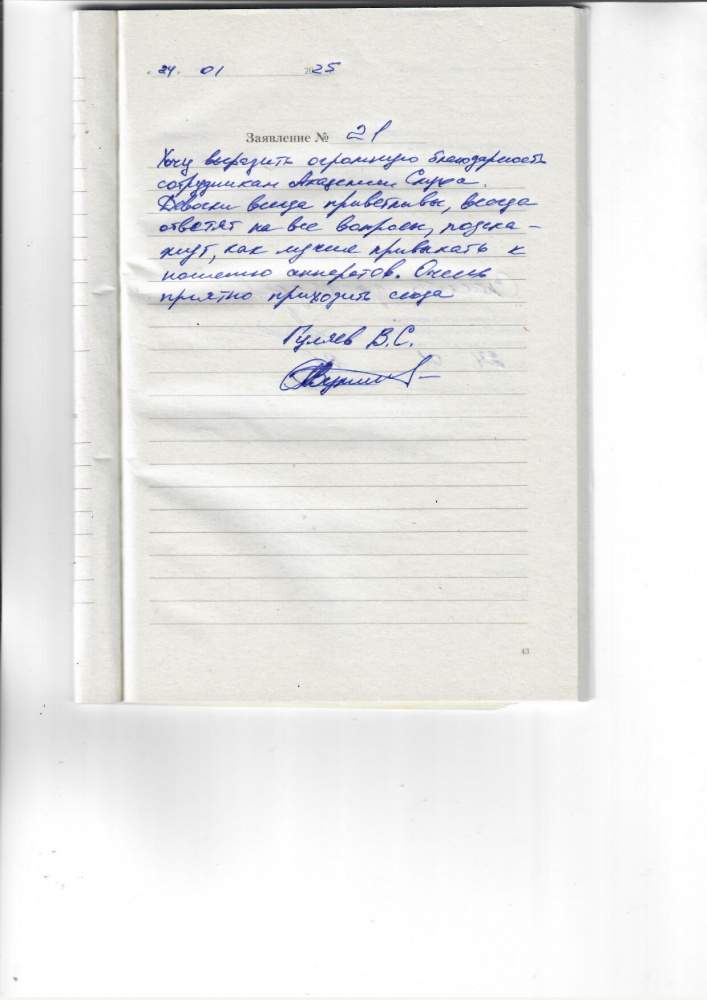 24. 01 2025
Заявление № 21
Хочу выразить огромную благодарность
сотрудникам Академии Слуха.
Девочки всегда приветливы, всегда
ответят на все вопросы, подска-
жут, как лучше привыкать к
ношению аппаратов. Очень
приятно приходить сюда
Гуляев В.С.
43